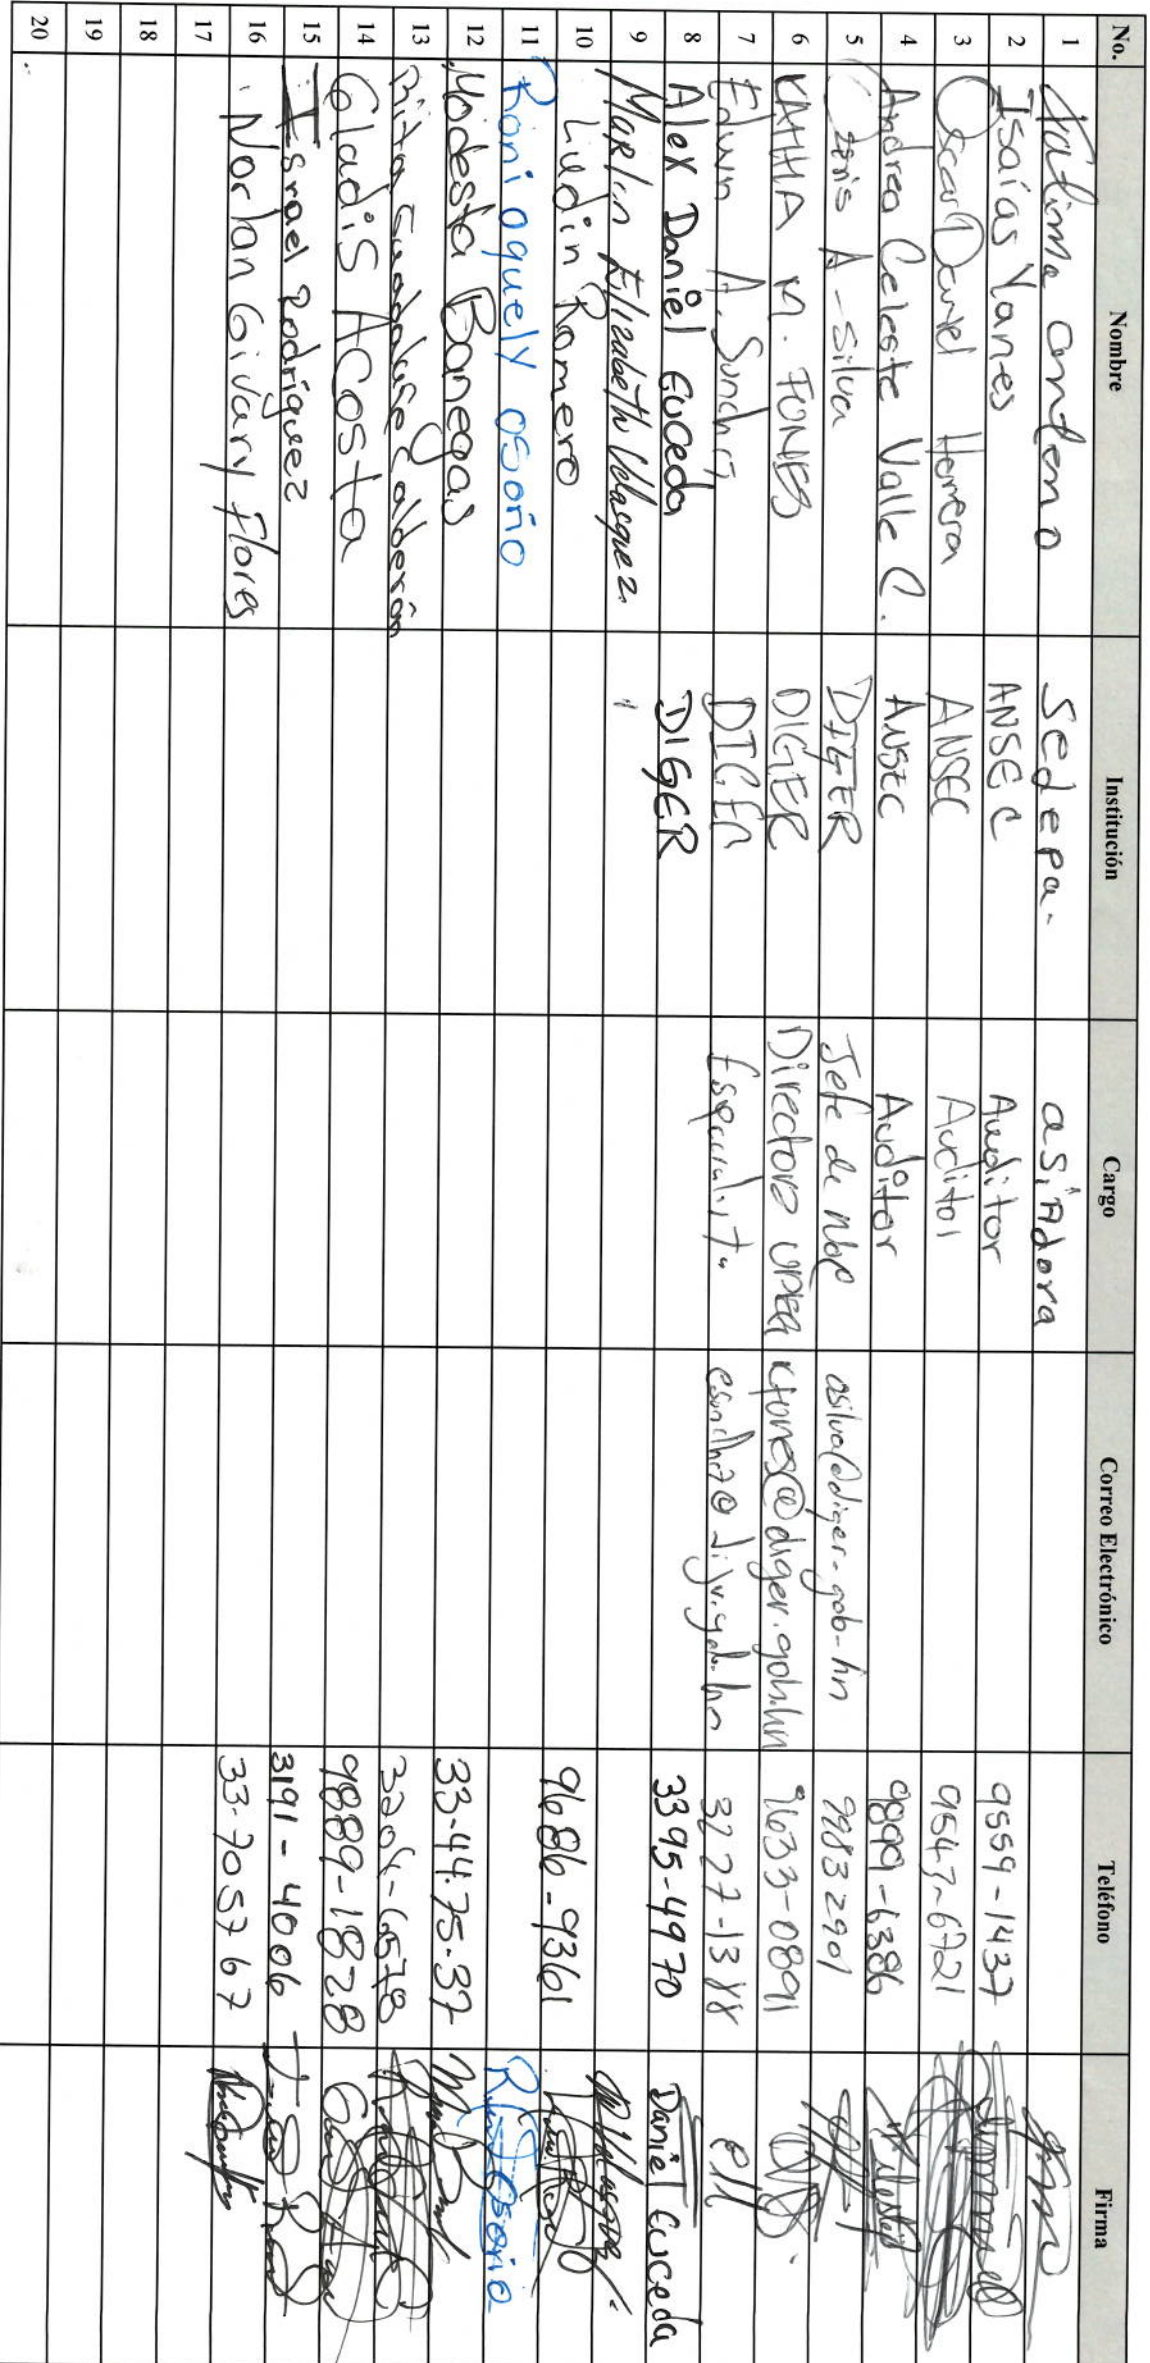 No. Nombre Institución Cargo Correo Electrónico Teléfono Firma
1 Fatima Centeno Sedepa. asiAdora
2 Isaías Yanes ANSEC Auditor 9559-1437
3 Oscar Daniel Herrera ANSEC Auditor 9547-6721
4 Andrea Celeste Valle C. ANSEC Auditor 9899-6386
5 Denis A-Silva DIGER Jefe de asilva@diger.gob.hn 99832901
6 KATHIA M. FONES DIGER Directora kfones@diger.gob.hn 9633-0891
7 Edwin A. DIGER Especialista 3227-1388
8 Alex Daniel Euceda DIGER 3395-4970 Daniel Euceda
9 Marlin Elizabeth Velasquez
10 Ludin Romero 9686-9361
11 Roni oquely osorio Osorio
12 Modesta Banegas 33-44.75-37
13 Rita Guadalupe Calderón 3204-6578
14 Gladis Acosta 9889-1828
15 Israel Rodríguez 3191-4006
16 Norlan Givany Flores 33-705767
17
18
19
20